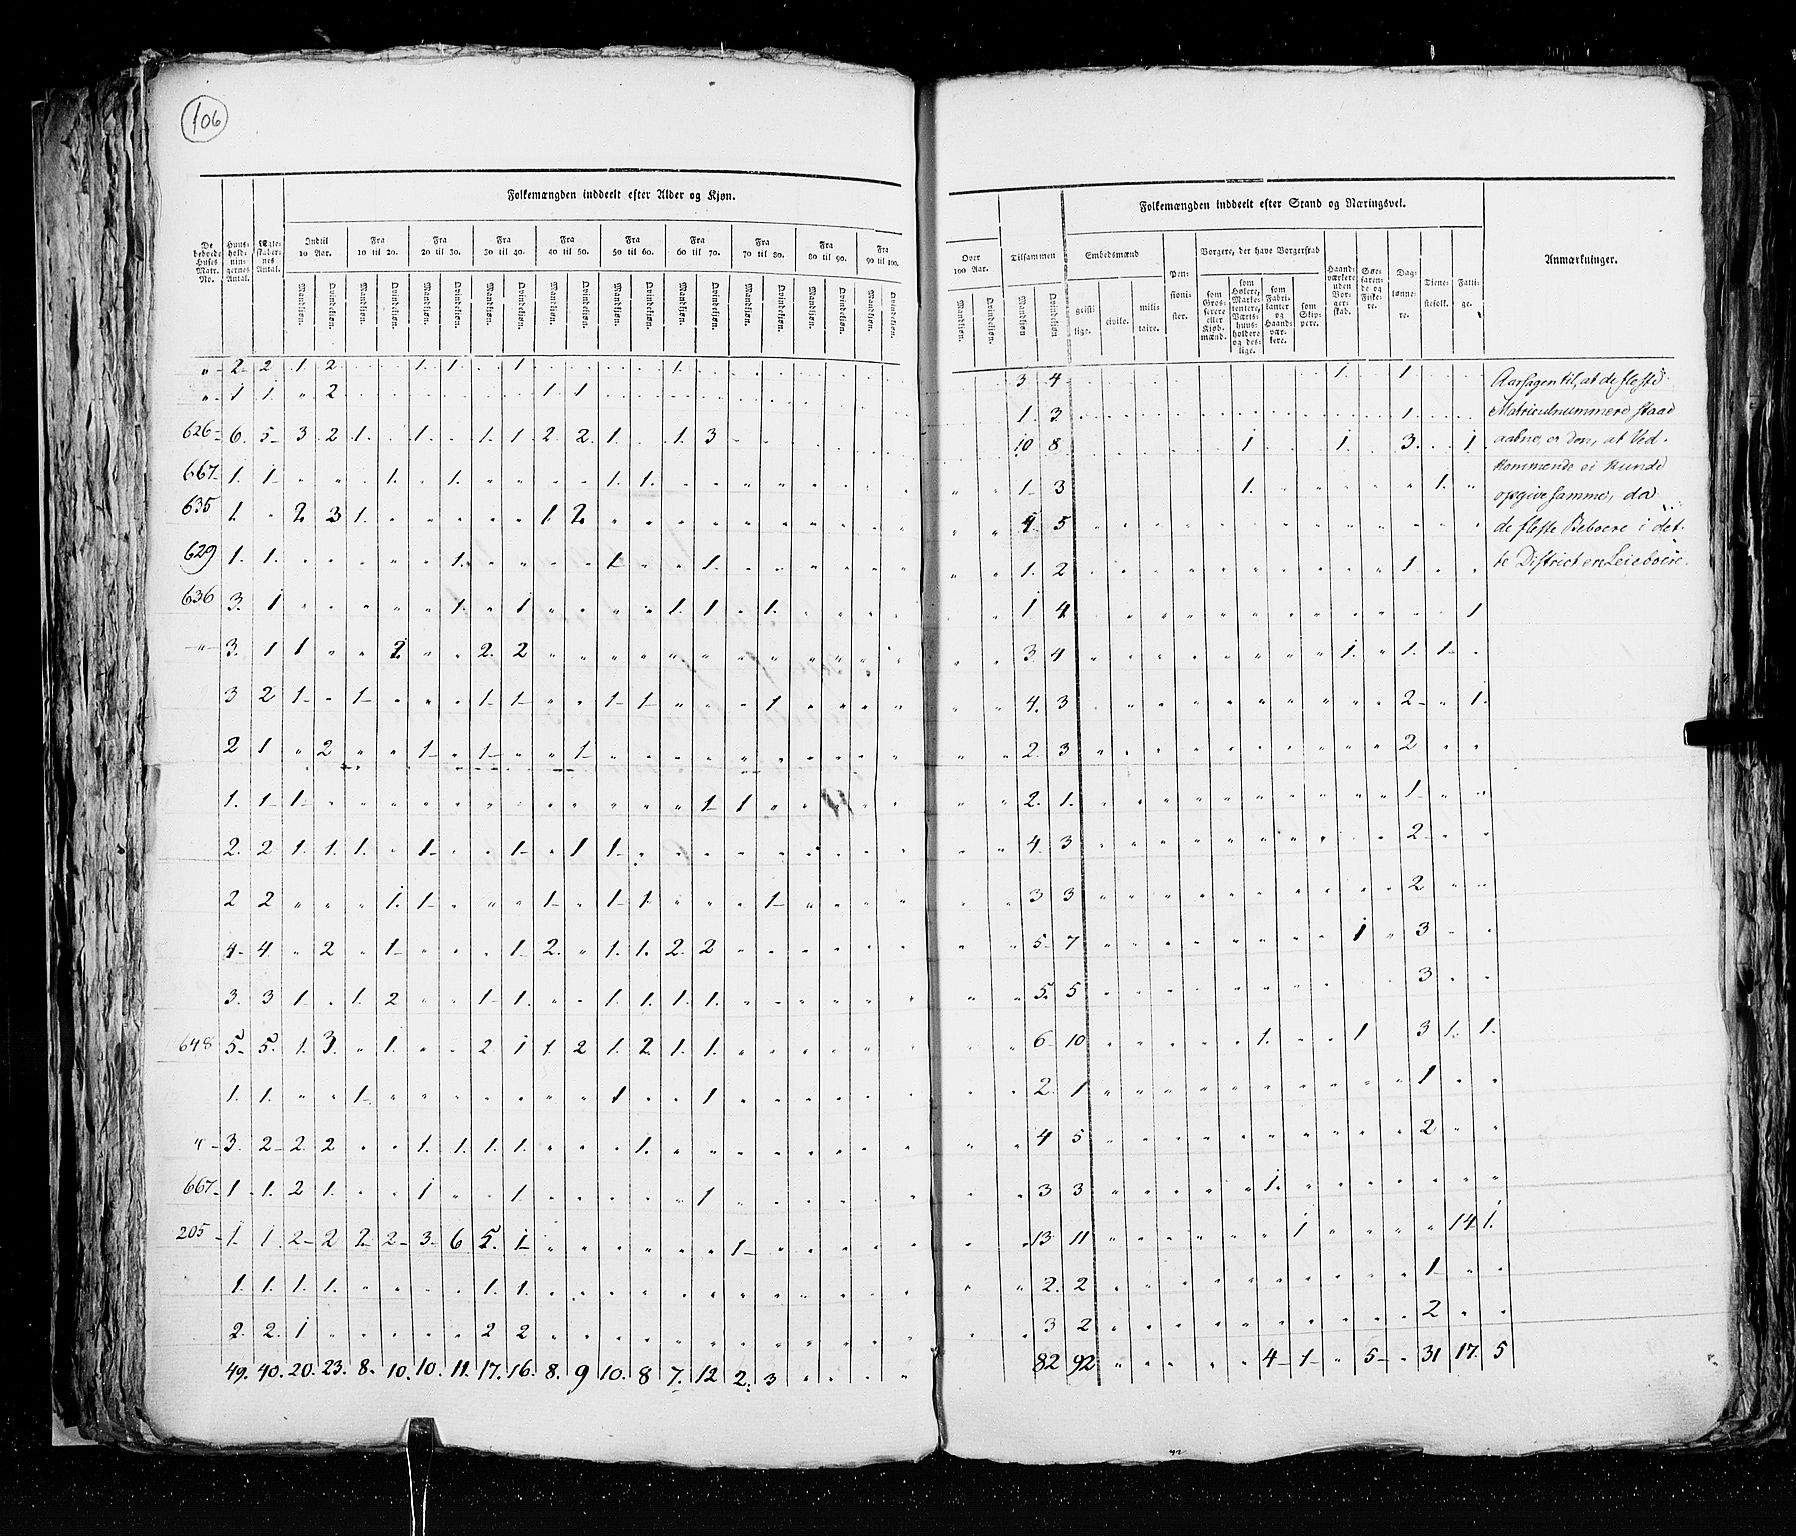 106
Folkemængden inddeelt efter Alder og Kjøn.
De beboede Huses Matr. No. | Huus-hold-nin-gernes Antal. | Ægte-skaber-nes Antal. | Indtil 10 Aar. | Fra 10 til 20. | Fra 20 til 30. | Fra 30 til 40. | Fra 40 til 50. | Fra 50 til 60. | Fra 60 til 70. | Fra 70 til 80. | Fra 80 til 90. | Fra 90 til 100.
Mandkiøn. Qvindekiøn. Mandkiøn. Qvindekiøn. Mandkiøn. Qvindekiøn. Mandkiøn. Qvindekiøn. Mandkiøn. Qvindekiøn. Mandkiøn. Qvindekiøn. Mandkiøn. Qvindekiøn. Mandkiøn. Qvindekiøn. Mandkiøn. Qvindekiøn. Mandkiøn. Qvindekiøn.
" 2 2 1. 2 . . 1. 1. . 1 . . . . 1.
" 1 1. " 2 . . . . . . 1 1
626 6. 5 3 2 1. . 1. . 1. 1 2 2. 1. . 1. 3
667 1. 1 " " . 1. . 1. . . . . 1. 1.
635 1. " 2. 3 1. " " " " " 1 2.
629 1. 1. " " " " " 1. " " " " 1 " " 1.
636 3. 1 " " " " " 1. " 1 " " " " 1. 1. " 1.
" 3. 1 1 " " 2. " " 2. 2
3 2 1 " 1 " " " 1 1 " " 1 1 " " " 1
2 1 " 2 " " 1 " 1 " " 1
1. 1 1 " " " " " " " " " " " " 1 1
2. 2 1. 1. 1. " 1 " " 1 " 1 1
2 2 " " " 1. 1 " " " 1 " 1 1. " " " 1
4. 4 " 2 " 1 " " " 1. 2. " 1. 1. 2. 2
3. 3 1 " 1. 2 " " 1 1. " " 1. 1. 1. 1.
648 5. 5. 1. 3. " 1. " " 2 1 1. 2 1. 2. 1. 1.
1. 1. " " 1 " " " " " " " 1 " " 1
" 3. 2 2 2 " " 1. 1. 1. 1. " " " 1.
667 1 1. 2 1. " " 1 " " 1. " " " " " 1
205 1. 1 2 2 2 2 3 6 5. 1 " " " " " " 1
1. 1. 1. 1. " " " " 1. 1.
2. 2. 1 " " " " " 2 2
49. 40. 20. 23. 8. 10. 10. 11. 17. 16. 8. 9 10. 8 7. 12 2. 3
Folkemængden inddeelt efter Stand og Næringsvei.
Over 100 Aar. | Tilsammen | Embedsmænd | Pen-sioni-ster. | Borgere, der have Borgerskab | Haand-værkere uden Bor-ger-skab. | Søe-faren-de og Fiske-re. | Dag-lønne-re. | Tiene-stefolk. | Fatti-ge. | Anmærkninger.
Mandkiøn. Qvindekiøn. Mandkiøn Qvindekiøn geistlige. civile. militaire. som Grosserere eller Kjøbmænd. som Høkere, Marketentere, Værtshuusholdere og deslige. som Fabrikanter og Haandværkere. som Skippere.
3 4 1. 1
1. 3 1.
10 8 1 1. 3. 1
1 3 1. 1.
4. 5
1. 2 1
1 4 1
3. 4 1. 1. 1
4. 3 2 1.
2. 3 2
2. 1. 1
4. 3 2
3 3 2
5 7 1 3
5. 5 3
6 10 1. 1 3 1. 1.
2. 1 1
4 5 2
3 3 1.
13 11 1 14 1.
2. 2 1
3 2 2
82 92 4 1 5 31 17. 5
Aarsagen til, at de fleste
Matriculnummere staae
aabne, er den, at Ved-
kommende ei kunde
opgive samme, da
de fleste Beboere i det-
te District er Leieboere.